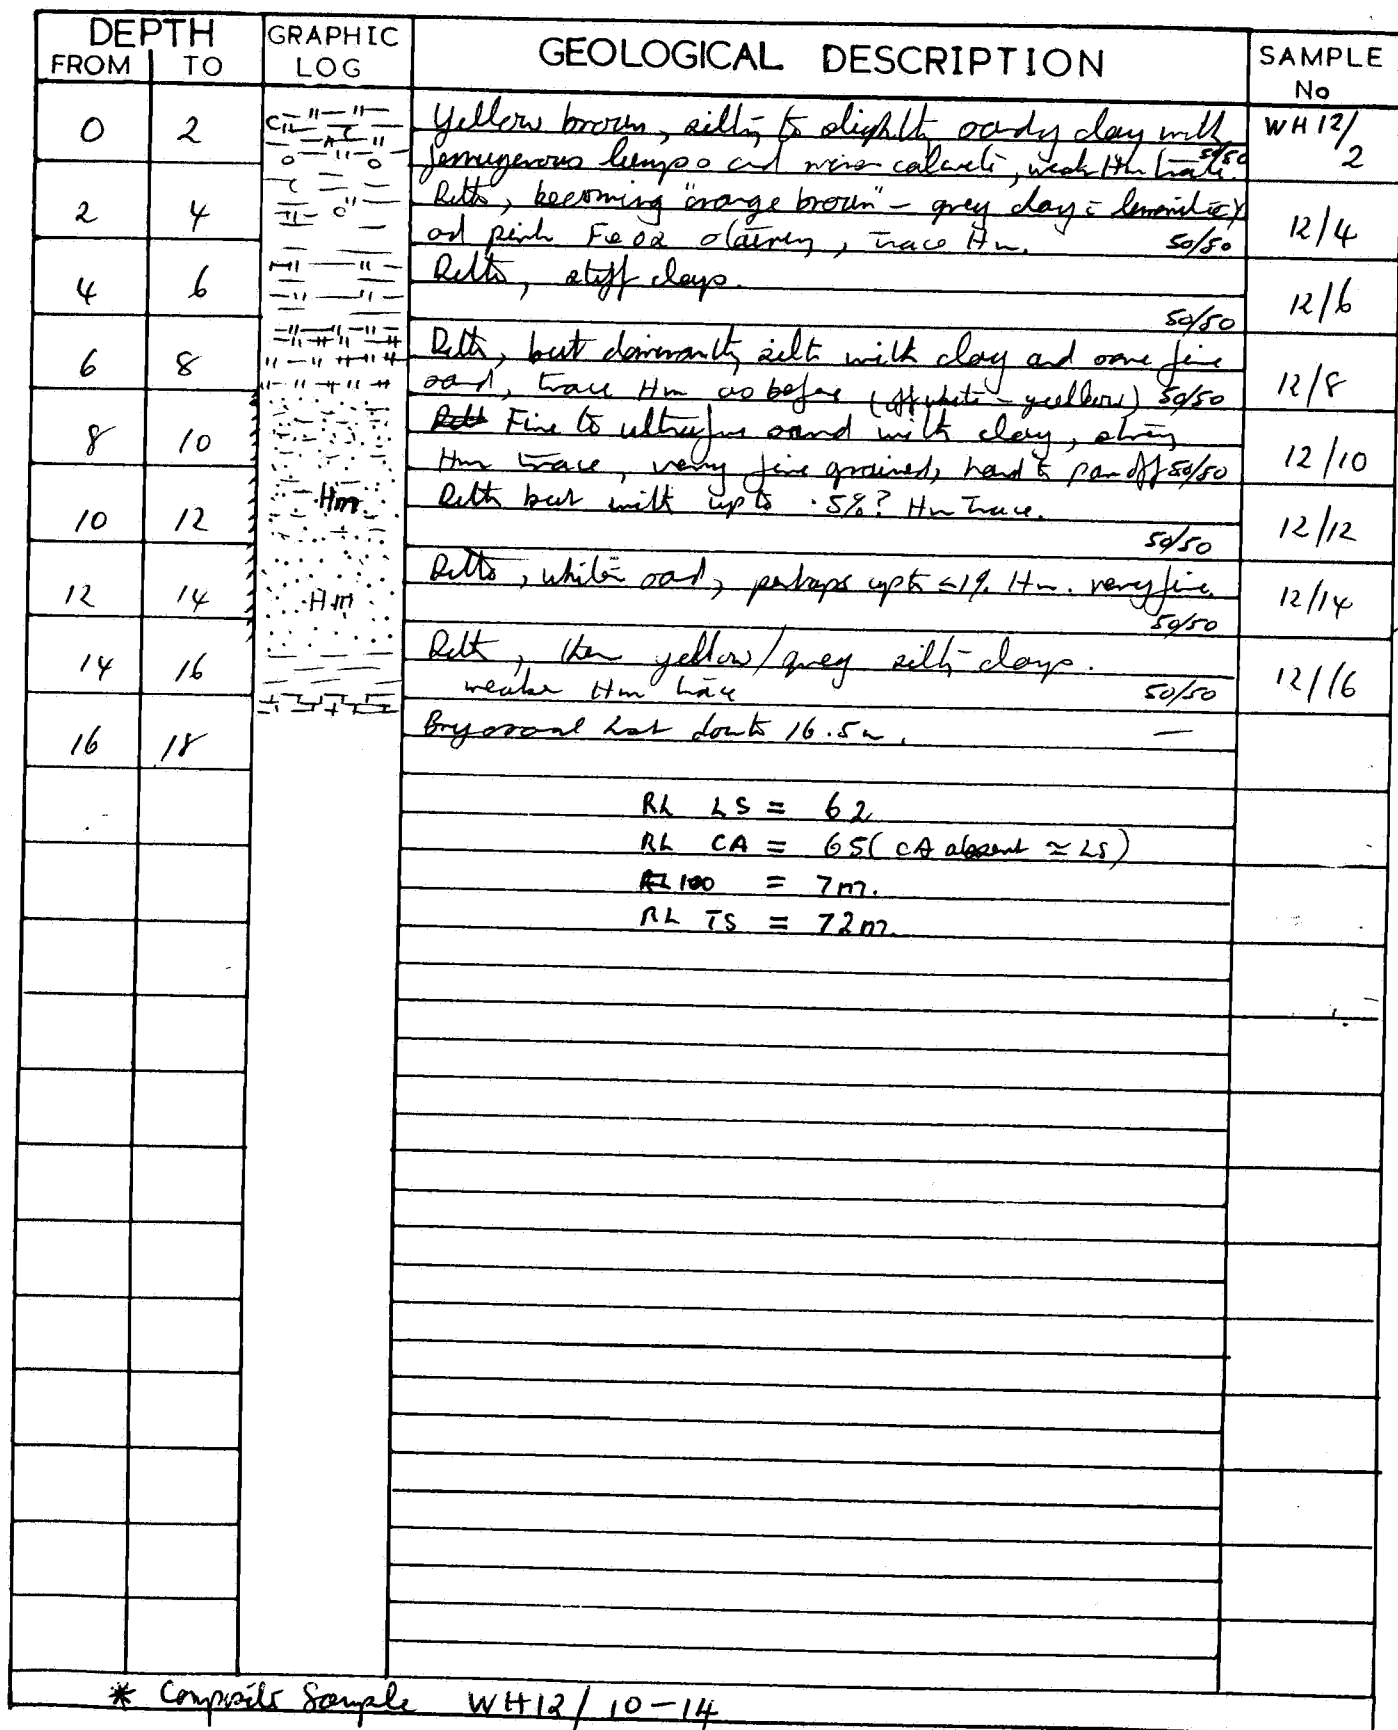 DEPTH GRAPHIC LOG GEOLOGICAL DESCRIPTION SAMPLE No
FROM TO
0 2 Yellow brown, silty to slightly sandy clay with WH12/2
ferrugenous lumps and minor calcrete, weak Hm trace. 50/50
2 4 Ditto, becoming "orange brown" - grey clay c limonitic 12/4
and pink Fe ox staining, trace Hm. 50/50
4 6 Ditto, stiff clays. 12/6
50/50
6 8 Ditto, but dominantly silt with clay and some fine 12/8
sand, trace Hm as before (off white - yellow) 50/50
8 10 Fine to ultrafine sand with clay, strong 12/10
Hm trace, very fine grained, hard to pan off 50/50
10 12 Hm Ditto but with up to .5%? Hm trace. 12/12
50/50
12 14 Hm Ditto, white sand, perhaps upto ≤1% Hm. very fine. 12/14
50/50
14 16 Ditto, then yellow/grey silty clays. 12/16
weaker Hm trace 50/50
16 18 Bryozoal Lst down to 16.5m. —
RL LS = 62
RL CA = 65 (CA absent ≃ LS)
100 = 7m.
RL TS = 72m.
* Composite Sample WH12/10-14